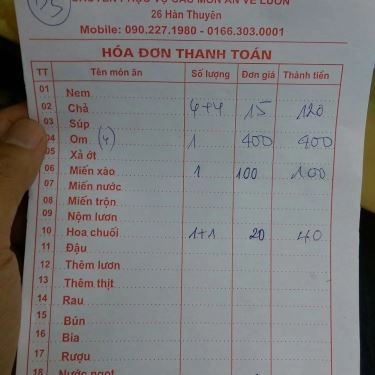 CHUYÊN PHỤC VỤ CÁC MÓN ĂN VỀ LƯƠN
26 Hàn Thuyên
Mobile: 090.227.1980 - 0166.303.0001
HÓA ĐƠN THANH TOÁN
TT Tên món ăn Số lượng Đơn giá Thành tiền
01 Nem
02 Chả 4+4 15 120
03 Súp
04 Om (4) 1 400 400
05 Xả ớt
06 Miến xào 1 100 100
07 Miến nước
08 Miến trộn
09 Nộm lươn
10 Hoa chuối 1+1 20 40
11 Đậu
12 Thêm lươn
13 Thêm thịt
14 Rau
15 Bún
16 Bia
17 Rượu
18 Nước ngọt